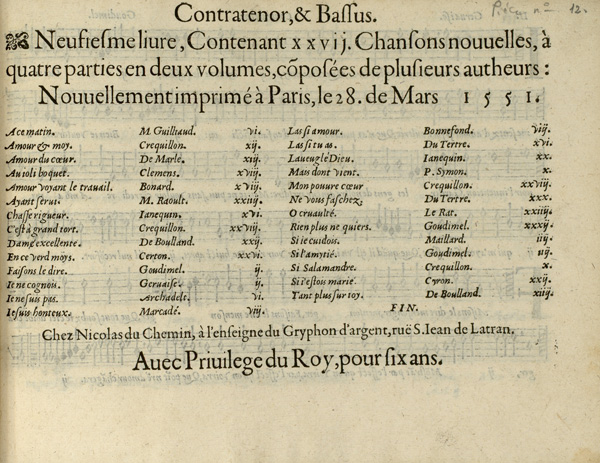 Pièce n° 12.
Contratenor, & Bassus.
Neufiesme liure, Contenant xxvij. Chansons nouuelles, à
quatre parties en deux volumes, cõposées de plusieurs autheurs :
Nouuellement imprimé à Paris, le 28. de Mars 1551.
A ce matin. M. Guilliaud. vi. Las si amour. Bonnefond. viij.
Amour & moy. Crequillon. xij. Las si tu as. Du Tertre. xvi.
Amour du cœur. De Marle. xiij. Laueugle Dieu. Ianequin. xx.
Au ioli boquet. Clemens. xviij. Mais dont vient. P. Symon. x.
Amour voyant le trauail. Bonard. xviij. Mon pouure cœur Crequillon. xxviij.
Ayant serui. M. Raoult. xxiij. Ne vous faschez, Du Tertre. xxx.
Chasse rigueur. Ianequin. xvi. O cruaulté. Le Rat. xxiiij.
C'est à grand tort. Crequillon. xxviij. Rien plus ne quiers. Goudimel. xxxij.
Dame excellente. De Boulland. xxij. Si ie cuidois. Maillard. iij.
En ce verd moys. Certon. xxvi. Si l'amytié. Goudimel. iij.
Faisons le dire. Goudimel. ij. Si Salamandre. Crequillon. x.
Ie ne cognois. Geruaise. ij. Si i'estois marie. Cyron. xxij.
Ie ne suis pas. Archadelt. vi. Tant plus sur toy. De Boulland. xiij.
Ie suis honteux. Marcadé. viij. FIN.
Chez Nicolas du Chemin, à l'enseigne du Gryphon d'argent, ruë S. Iean de Latran.
Auec Priuilege du Roy, pour six ans.